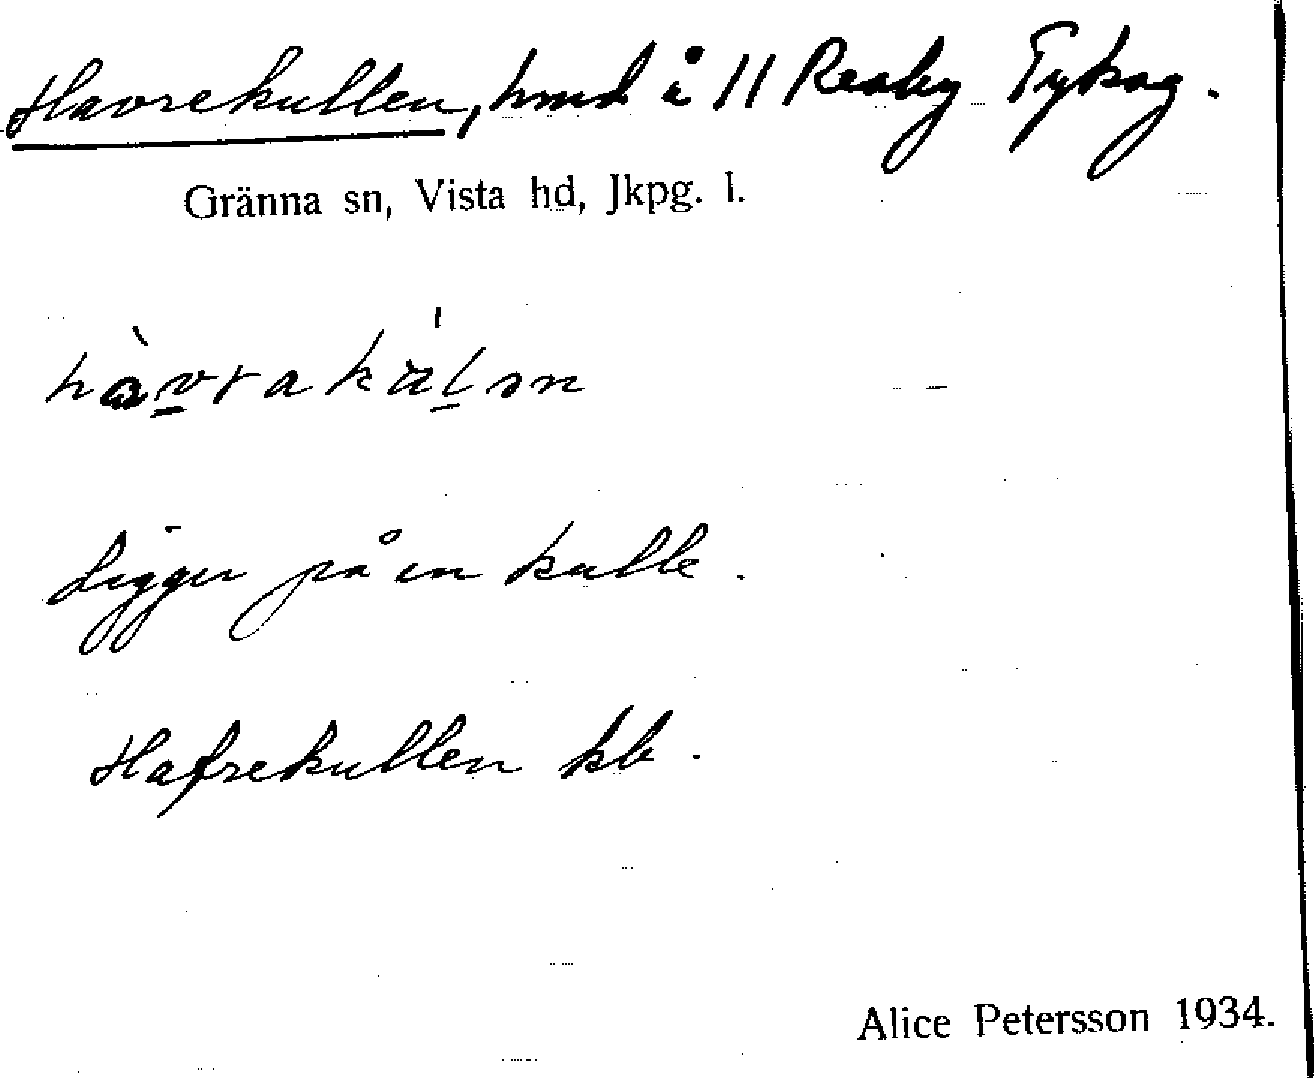 Havrekullen, hmd å 11 Reaby Tykog.
Gränna sn, Vista hd, Jkpg. l.
hàvrakúl̠ən
Ligger på en kulle.
Hafrekullen kb.
Alice Petersson 1934.